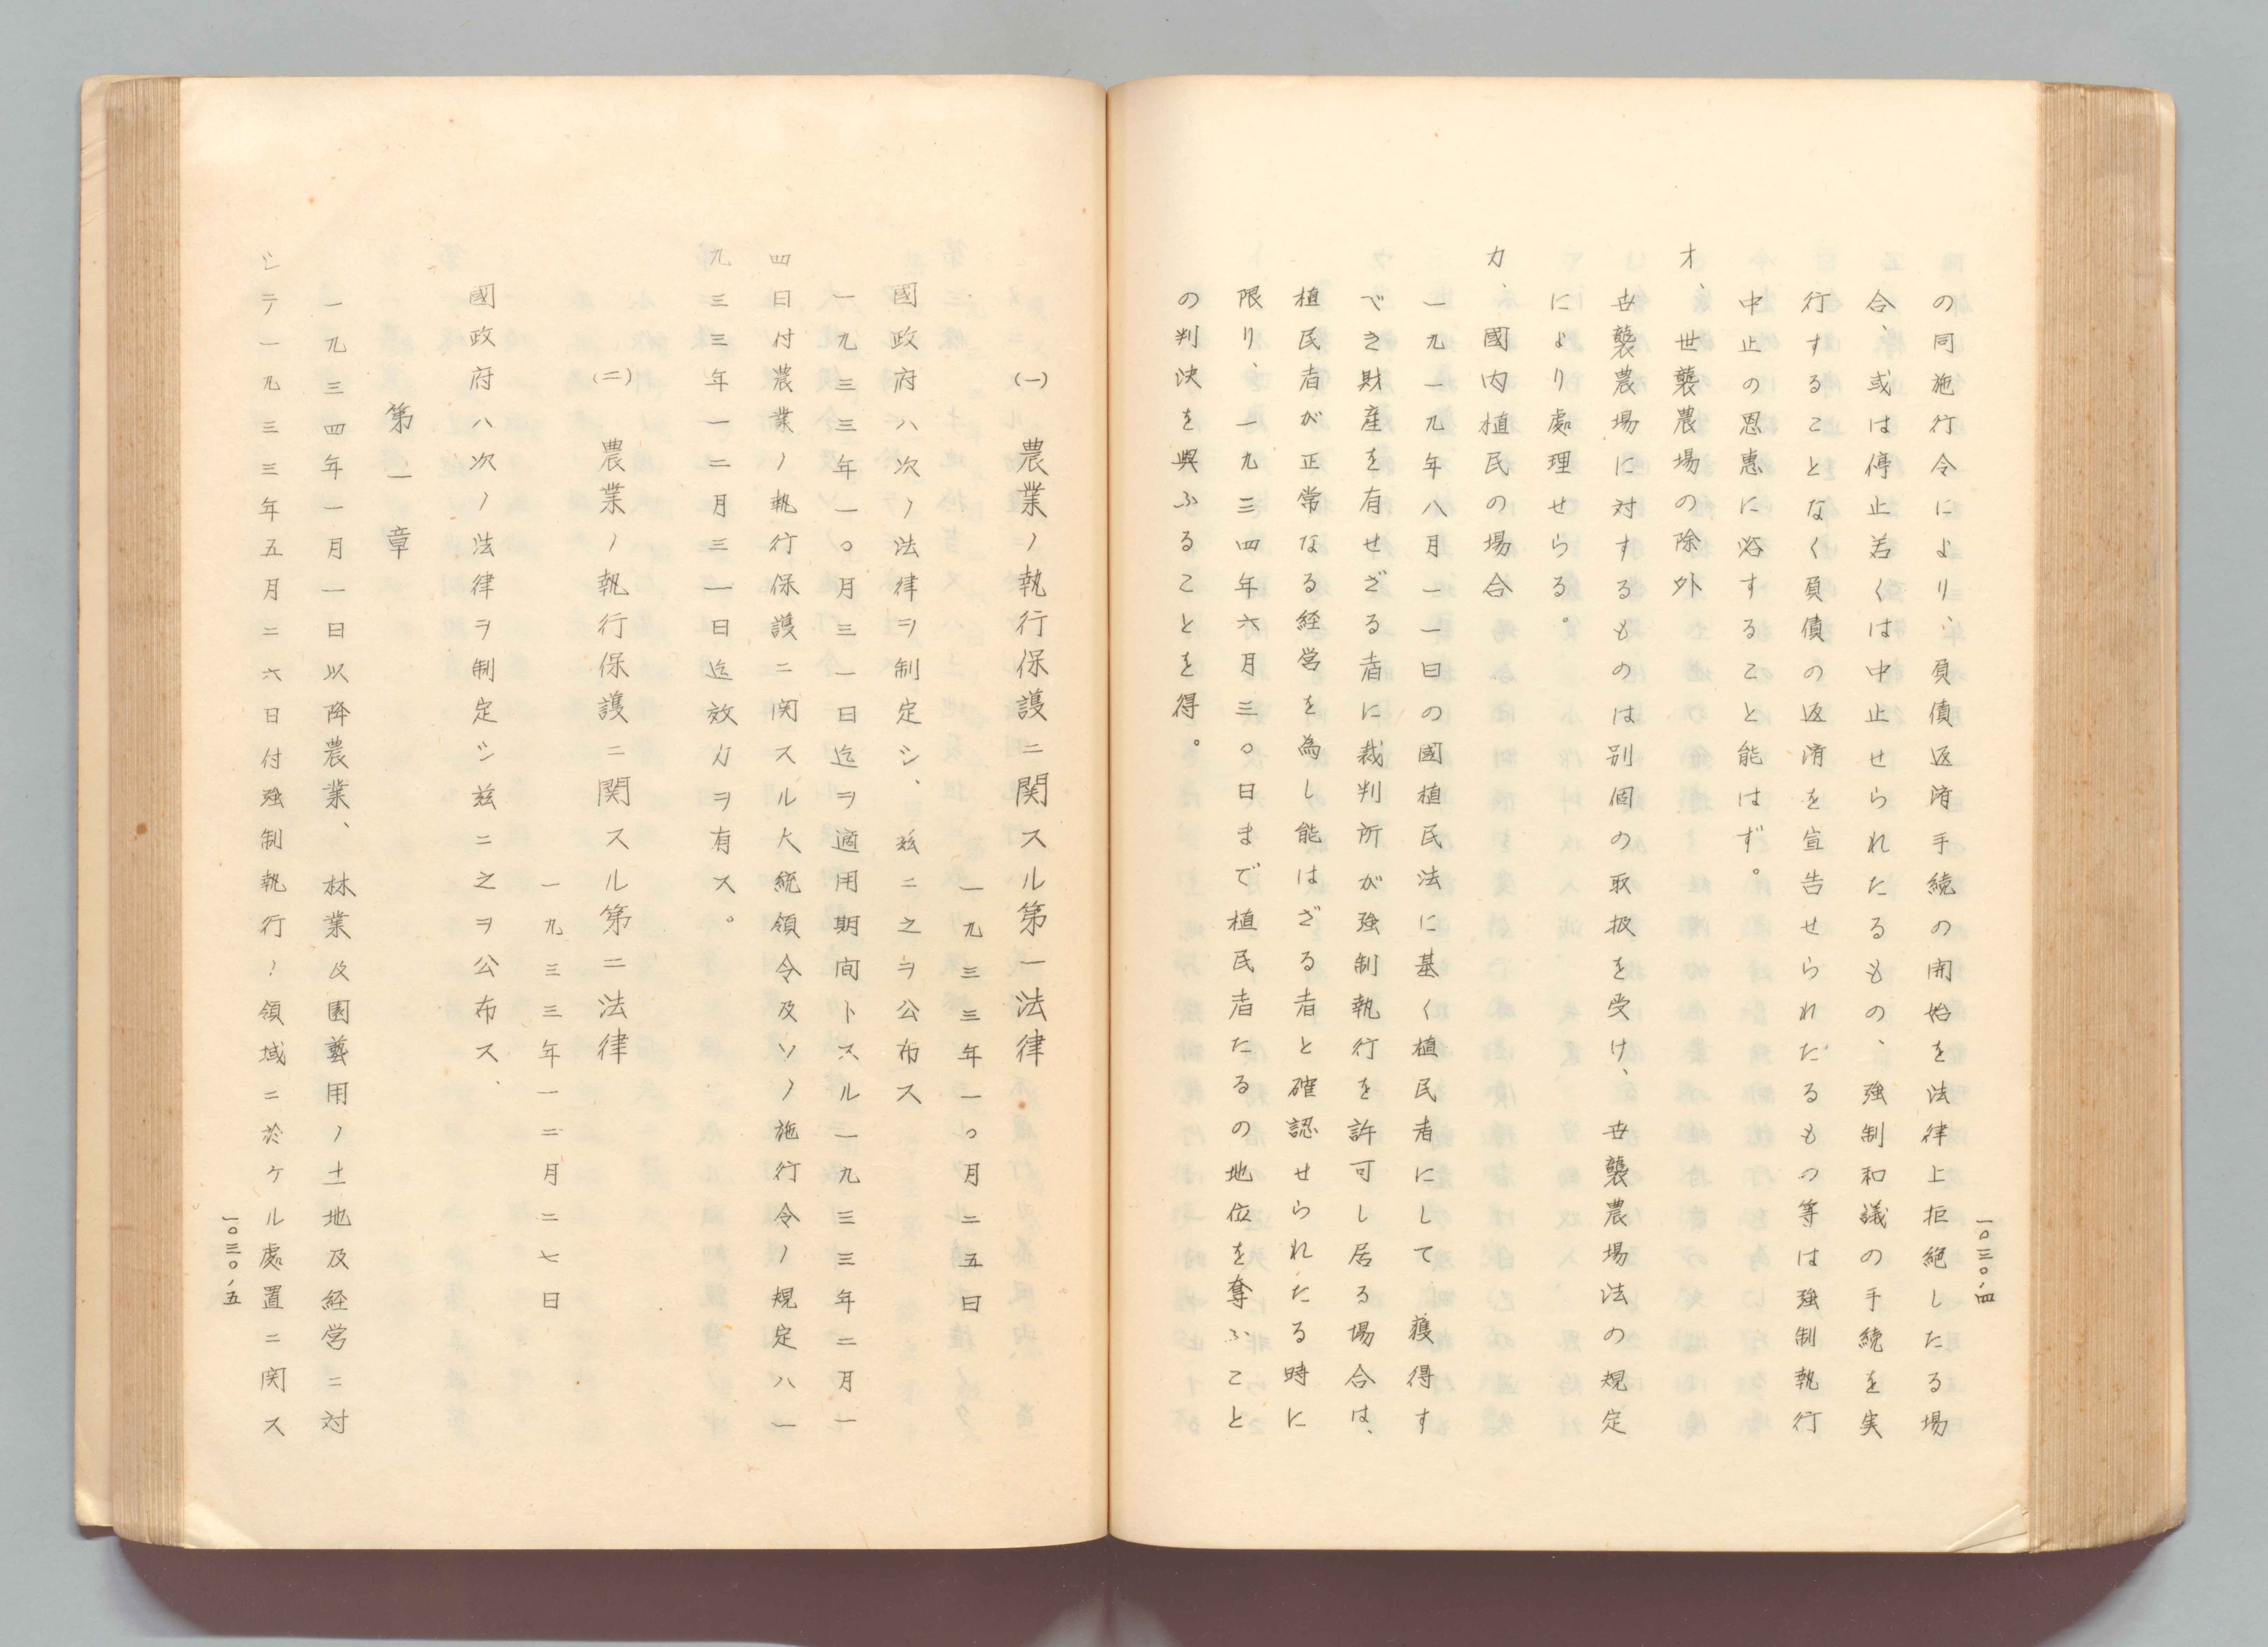 の同施行令により、負債返済手続の開始を法律上拒絶したる場
合、或は停止若くは中止せられたるもの、強制和議の手続を実
行することなく負債の返済を宣告せられたるもの等は強制執行
中止の恩恵に浴すること能はず。
オ、世襲農場の除外
世襲農場に対するものは別個の取扱を受け、世襲農場法の規定
により處理せらる。
カ、國内植民の場合
一九一九年八月一一日の國植民法に基く植民者にして獲得す
べき財産を有せざる者に裁判所が強制執行を許可し居る場合は、
植民者が正常なる経営を為し能はざる者と確認せられたる時に
限り、一九三四年六月三〇日まで植民者たるの地位を奪ふこと
の判決を與ふることを得。
一〇三〇、四
(一)農業ノ執行保護ニ関スル第一法律
一九三三年一〇月二五日
國政府ハ次ノ法律ヲ制定シ、茲ニ之ヲ公布ス
一九三三年一〇月三一日迄ヲ適用期間トスル一九三三年二月一
四日付農業ノ執行保護ニ関スル大統領令及ソノ施行令ノ規定ハ一
九三三年一二月三一日迄效力ヲ有ス。
(二)農業ノ執行保護ニ関スル第二法律
一九三三年一二月二七日
國政府ハ次ノ法律ヲ制定シ茲ニ之ヲ公布ス、
第一章
一九三四年一月一日以降農業、林業及園藝用ノ土地及経営ニ対
シテ一九三三年五月二六日付強制執行ノ領域ニ於ケル處置ニ関ス
一〇三〇、五